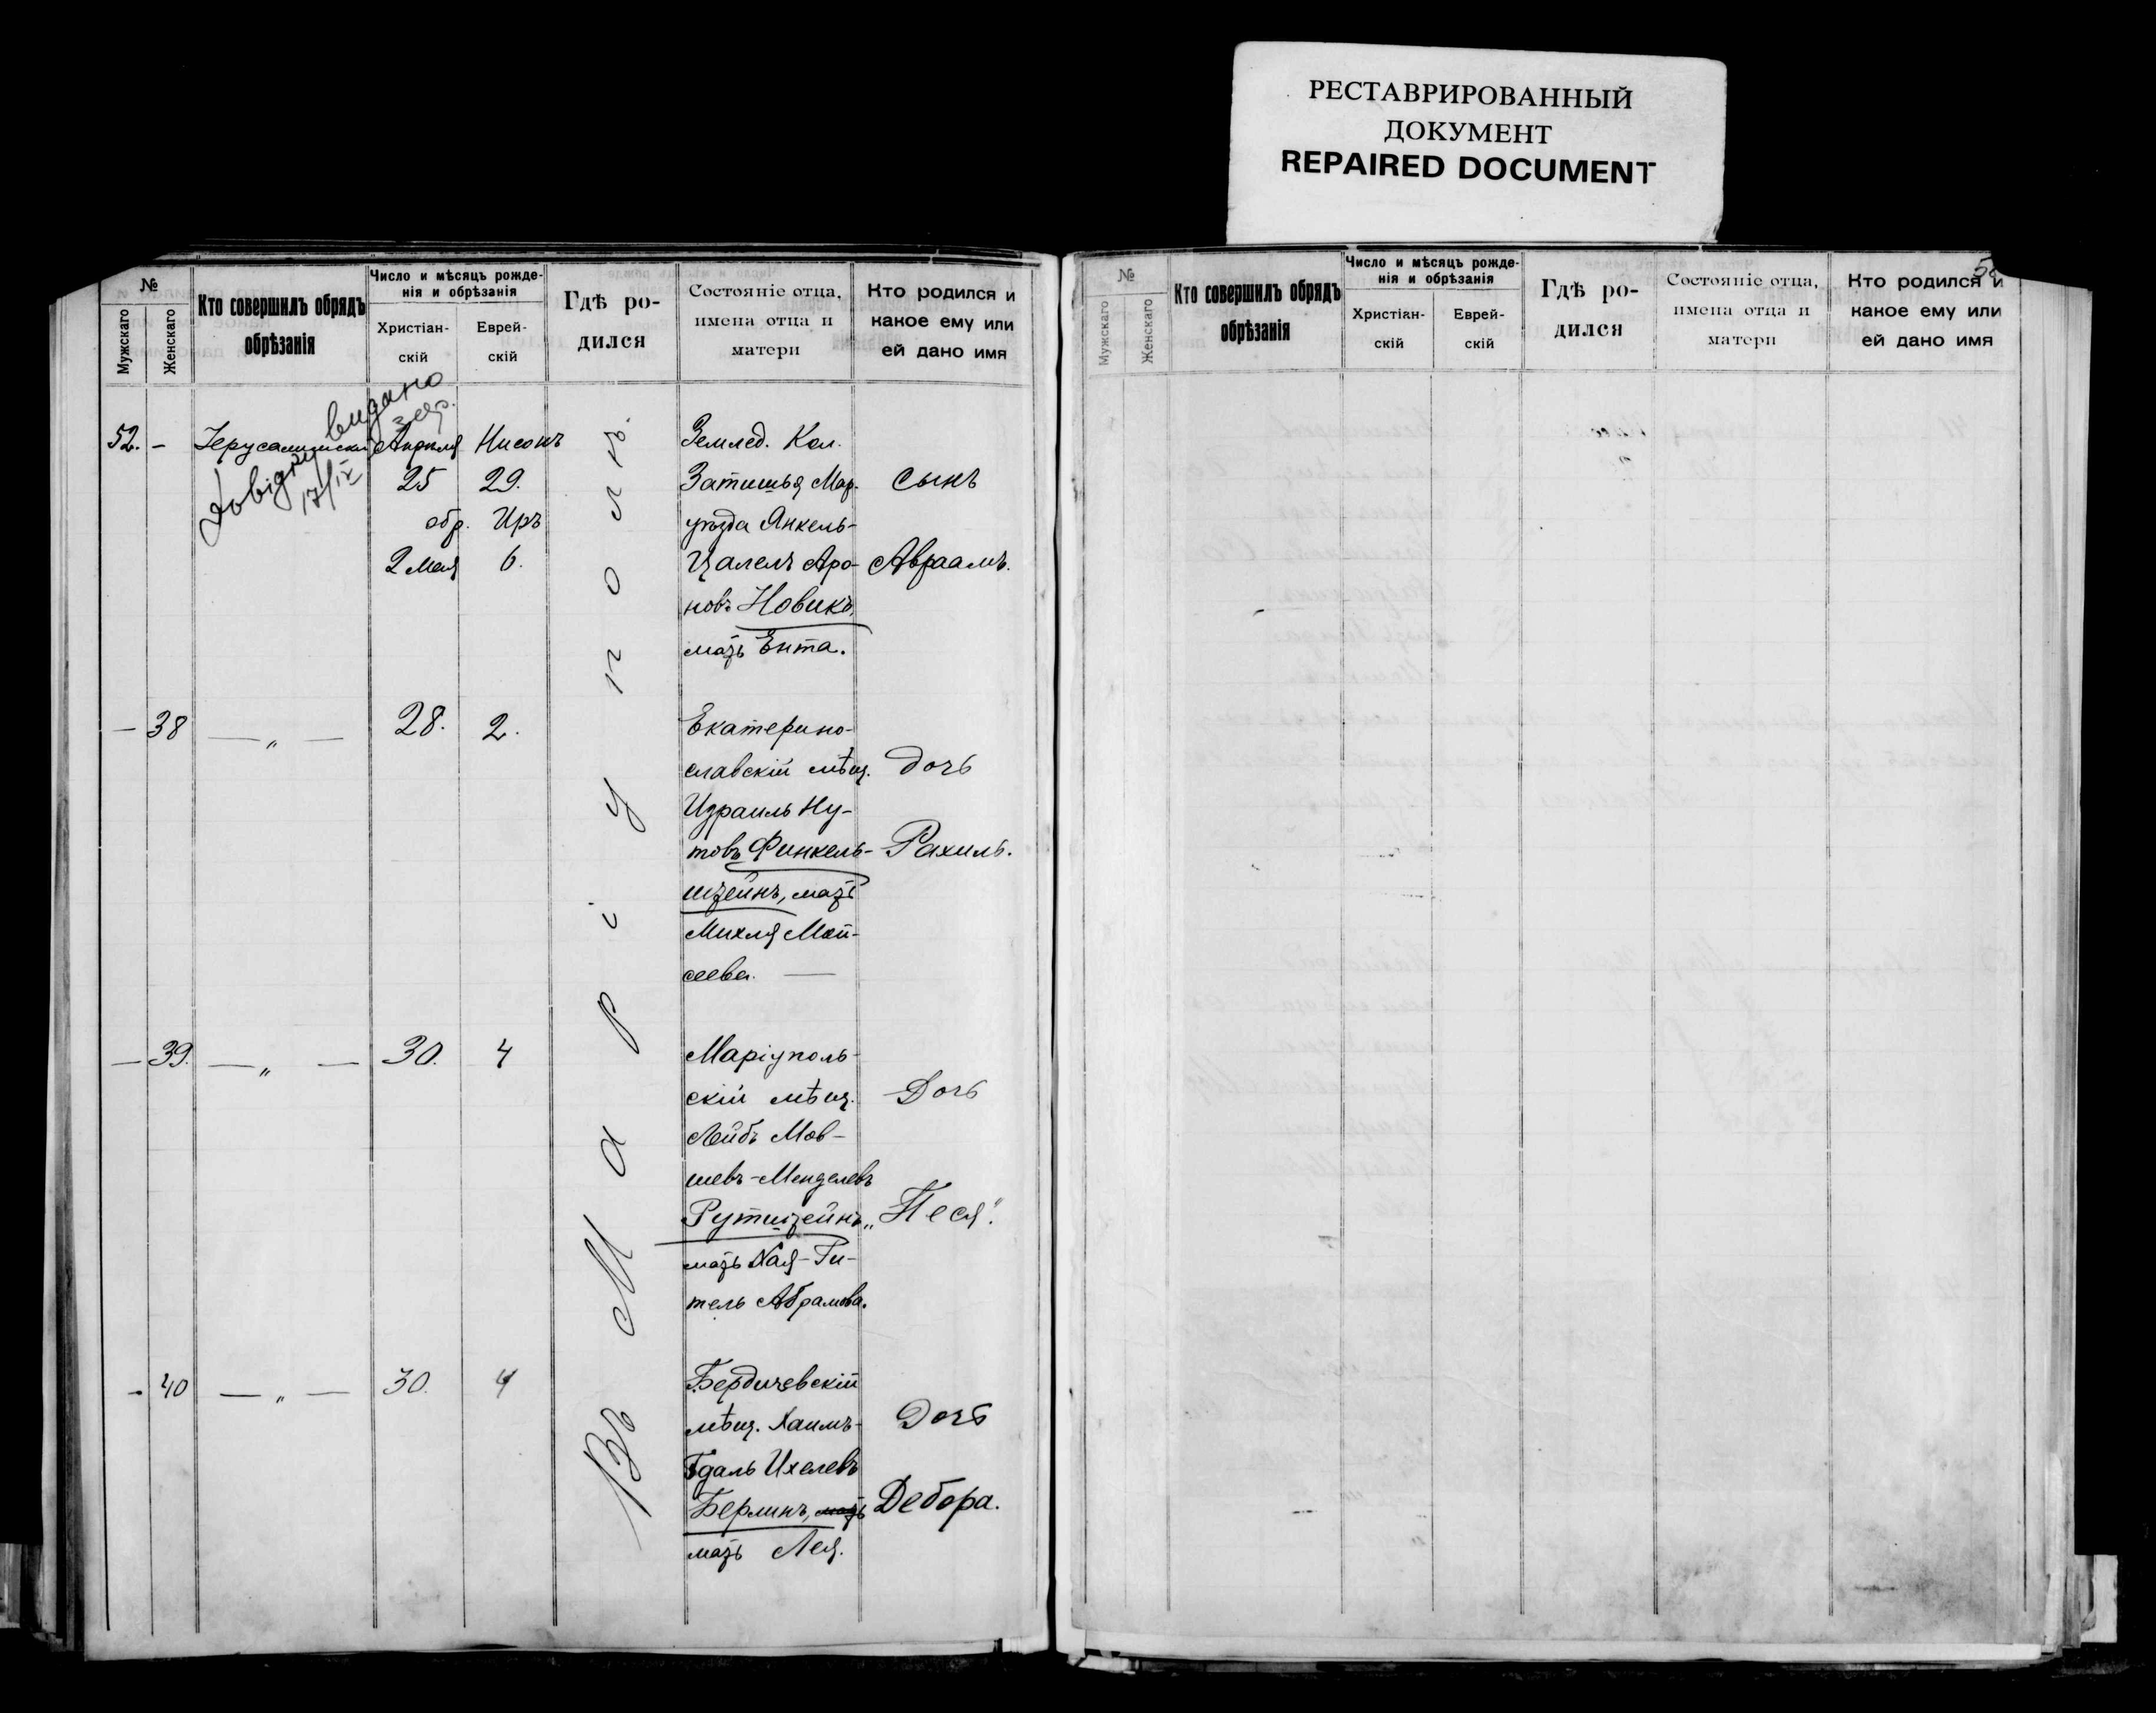 РЕСТАВРИРОВАННЫЙ
ДОКУМЕНТ
REPAIRED DOCUMENT
№
Мужскаго
Женскаго
Кто совершилъ обрядъ
обрѣзанія
Число и мѣсяцъ рожде-
нія и обрѣзанія
Христіан-
скій
Еврей-
скій
Гдѣ ро-
дился
Состояніе отца,
имена отца и
матери
Кто родился и
какое ему или
ей дано имя
Довідку видано
17/IX
Въ Маріуполѣ.
52. –
Іерусалимскій
Апрѣля
25
обр.
2 Мая
Нисонъ
29.
Иръ
6.
Землед. Кол.
Затишья Мар.
уѣзда Янкель-
Цалелъ Аро-
новъ Новикъ,
мать Ента.
сынъ
Авраамъ.
– 38
— „ —
28.
2.
Екатерино-
славскій мѣщ.
Израиль Ну-
товъ Финкель-
штейнъ, мать
Михля Мой-
сеева. —
дочь
Рахиль.
– 39.
— „ —
30.
4
Маріуполь-
скій мѣщ.
Лейбъ Мов-
шевъ-Менделевъ
Рутштейнъ,
мать Хая-Ги-
тель Абрамова.
Дочь
„Песя“.
– 40
— „ —
30.
4
Бердичевскій
мѣщ. Хаимъ-
Гдаль Ихелевъ
Берлинъ, мать
мать Лея.
Дочь
Дебора.
№
Мужскаго
Женскаго
Кто совершилъ обрядъ
обрѣзанія
Число и мѣсяцъ рожде-
нія и обрѣзанія
Христіан-
скій
Еврей-
скій
Гдѣ ро-
дился
Состояніе отца,
имена отца и
матери
Кто родился и
какое ему или
ей дано имя